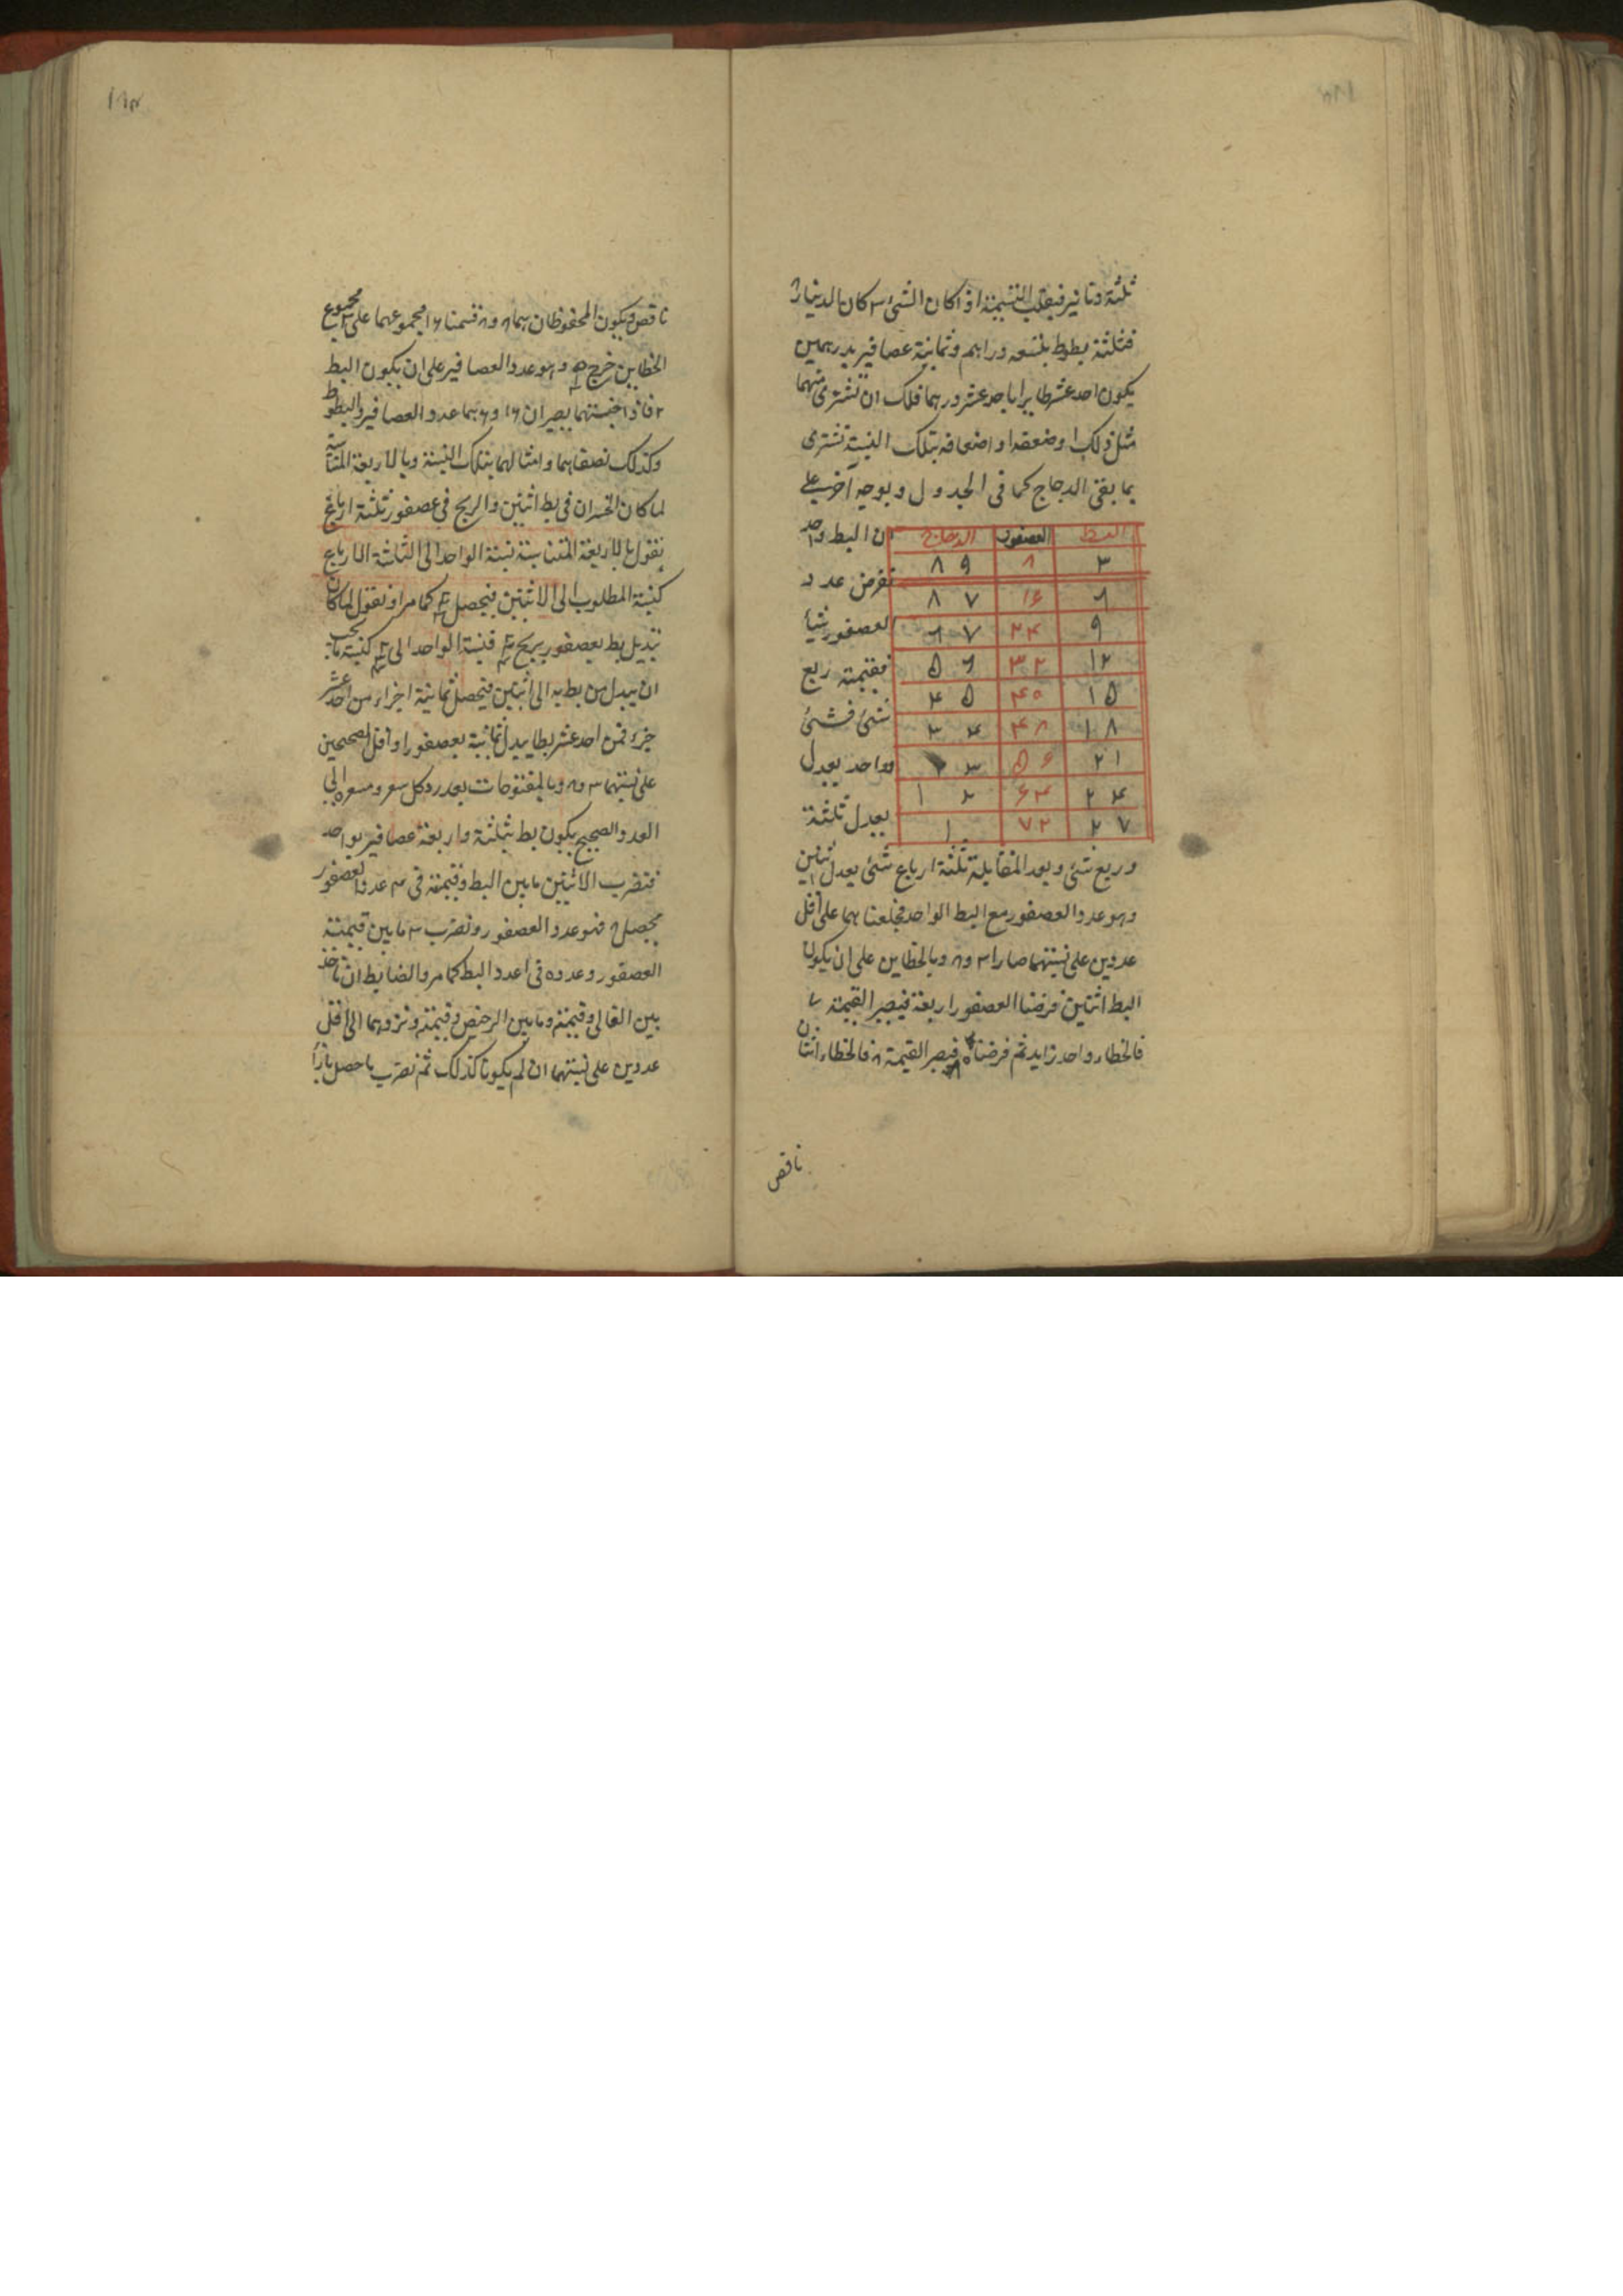 ثلثة دنانير فيقلب القسمة اذا كان الشئ ٣ كان الدينار ٨
فثلثة بطوط بتسعه دراهم وثمانية عصافير بدرهمين
يكون احد عشر طايرا باحد عشر درهما فلك ان تشترى منهما
مثل ذلك او ضعفه او اضعافه بتلك النسبة تشترى
بما بقى الدجاج كما فى الجدول وبوجه آخر على
ان البط واحد
نفرض عدد
العصفور شيأ
فقيمته ربع
شئ فشئ
وواحد يعدل
يعدل ثلثة
البط العصفور الدجاج
٣ ٨ ٨٩
٦ ١٦ ٧٨
٩ ٢٤ ٦٧
١٢ ٣٢ ٥٦
١٥ ٤٠ ٤٥
١٨ ٤٨ ٣٤
٢١ ٥٦ ٢٣
٢٤ ٦٤ ١٢
٢٧ ٧٢ ١
وربع شئ وبعد المقابلة ثلثة ارباع شئ يعدل اثنين
وهو عدد العصفور مع البط الواحد فجلعنا هما على اقل
عددين على نسبتهما صارا ٣ و٨ وبالخطاين على ان يكون
البط اثنين فرضنا العصفور اربعة فيصير القيمة ٧
فالخطاء واحد زايد ثم فرضناه فيصير القيمة ٨ فالخطاء اثنان
ناقص
١٨٣
ناقص ويكون المحفوظان هما ٨ و٨ قسمنا ١٦ مجموعهما على ٣ مجموع
الخطاين خرج وهو عدد العصافير على ان يكون البط
٢ فاذا جنستهما يصيران ١٦ و٦ هما عدد العصافير والبطوط
وكذلك نصفاهما وامثالهما بتلك النسبة وبالاربعة المتناسبة
لما كان الخسران فى بط اثنين والربح فى عصفور ثلثة ارباع
نقول بالاربعة المتناسبة نسبة الواحد الى الثلثة الارباع
كنسبة المطلوب الى الاثنين فيحصل كما مر او نقول لما كان
تبديل بط بعصفور يربح فنسبة الواحد الى كنسبة ما يجب
ان يبدل من بط به الى اثنين فيحصل ثمانية اجزاء من احد عشر
جزء فمن احد عشر بطا يبدل ثمانية بعصفور او اقل الصحيحين
على نسبتهما ٣ و٨ وبالمفتوحات بعد رد كل سعر ومسعره الى
العدد الصحيح يكون بط بثلثة واربعة عصافير بواحد
فنضرب الاثنين ما بين البط وقيمته فى ٤ عدد العصفور
يحصل ٨ فهو عدد العصفور ونضرب ٣ ما بين قيمته
العصفور وعدده فى ا عدد البط كما مر والضابط ان تاخذ
بين الغالى وقيمته وما بين الرخيص وقيمته ونردهما الى اقل
عددين على نسبتهما ان لم يكونا كذلك ثم نضرب ما حصل بازأ